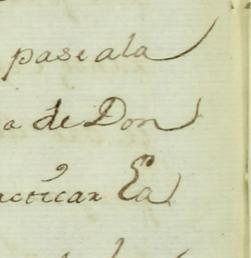 pase ala
a de Don
acticar La